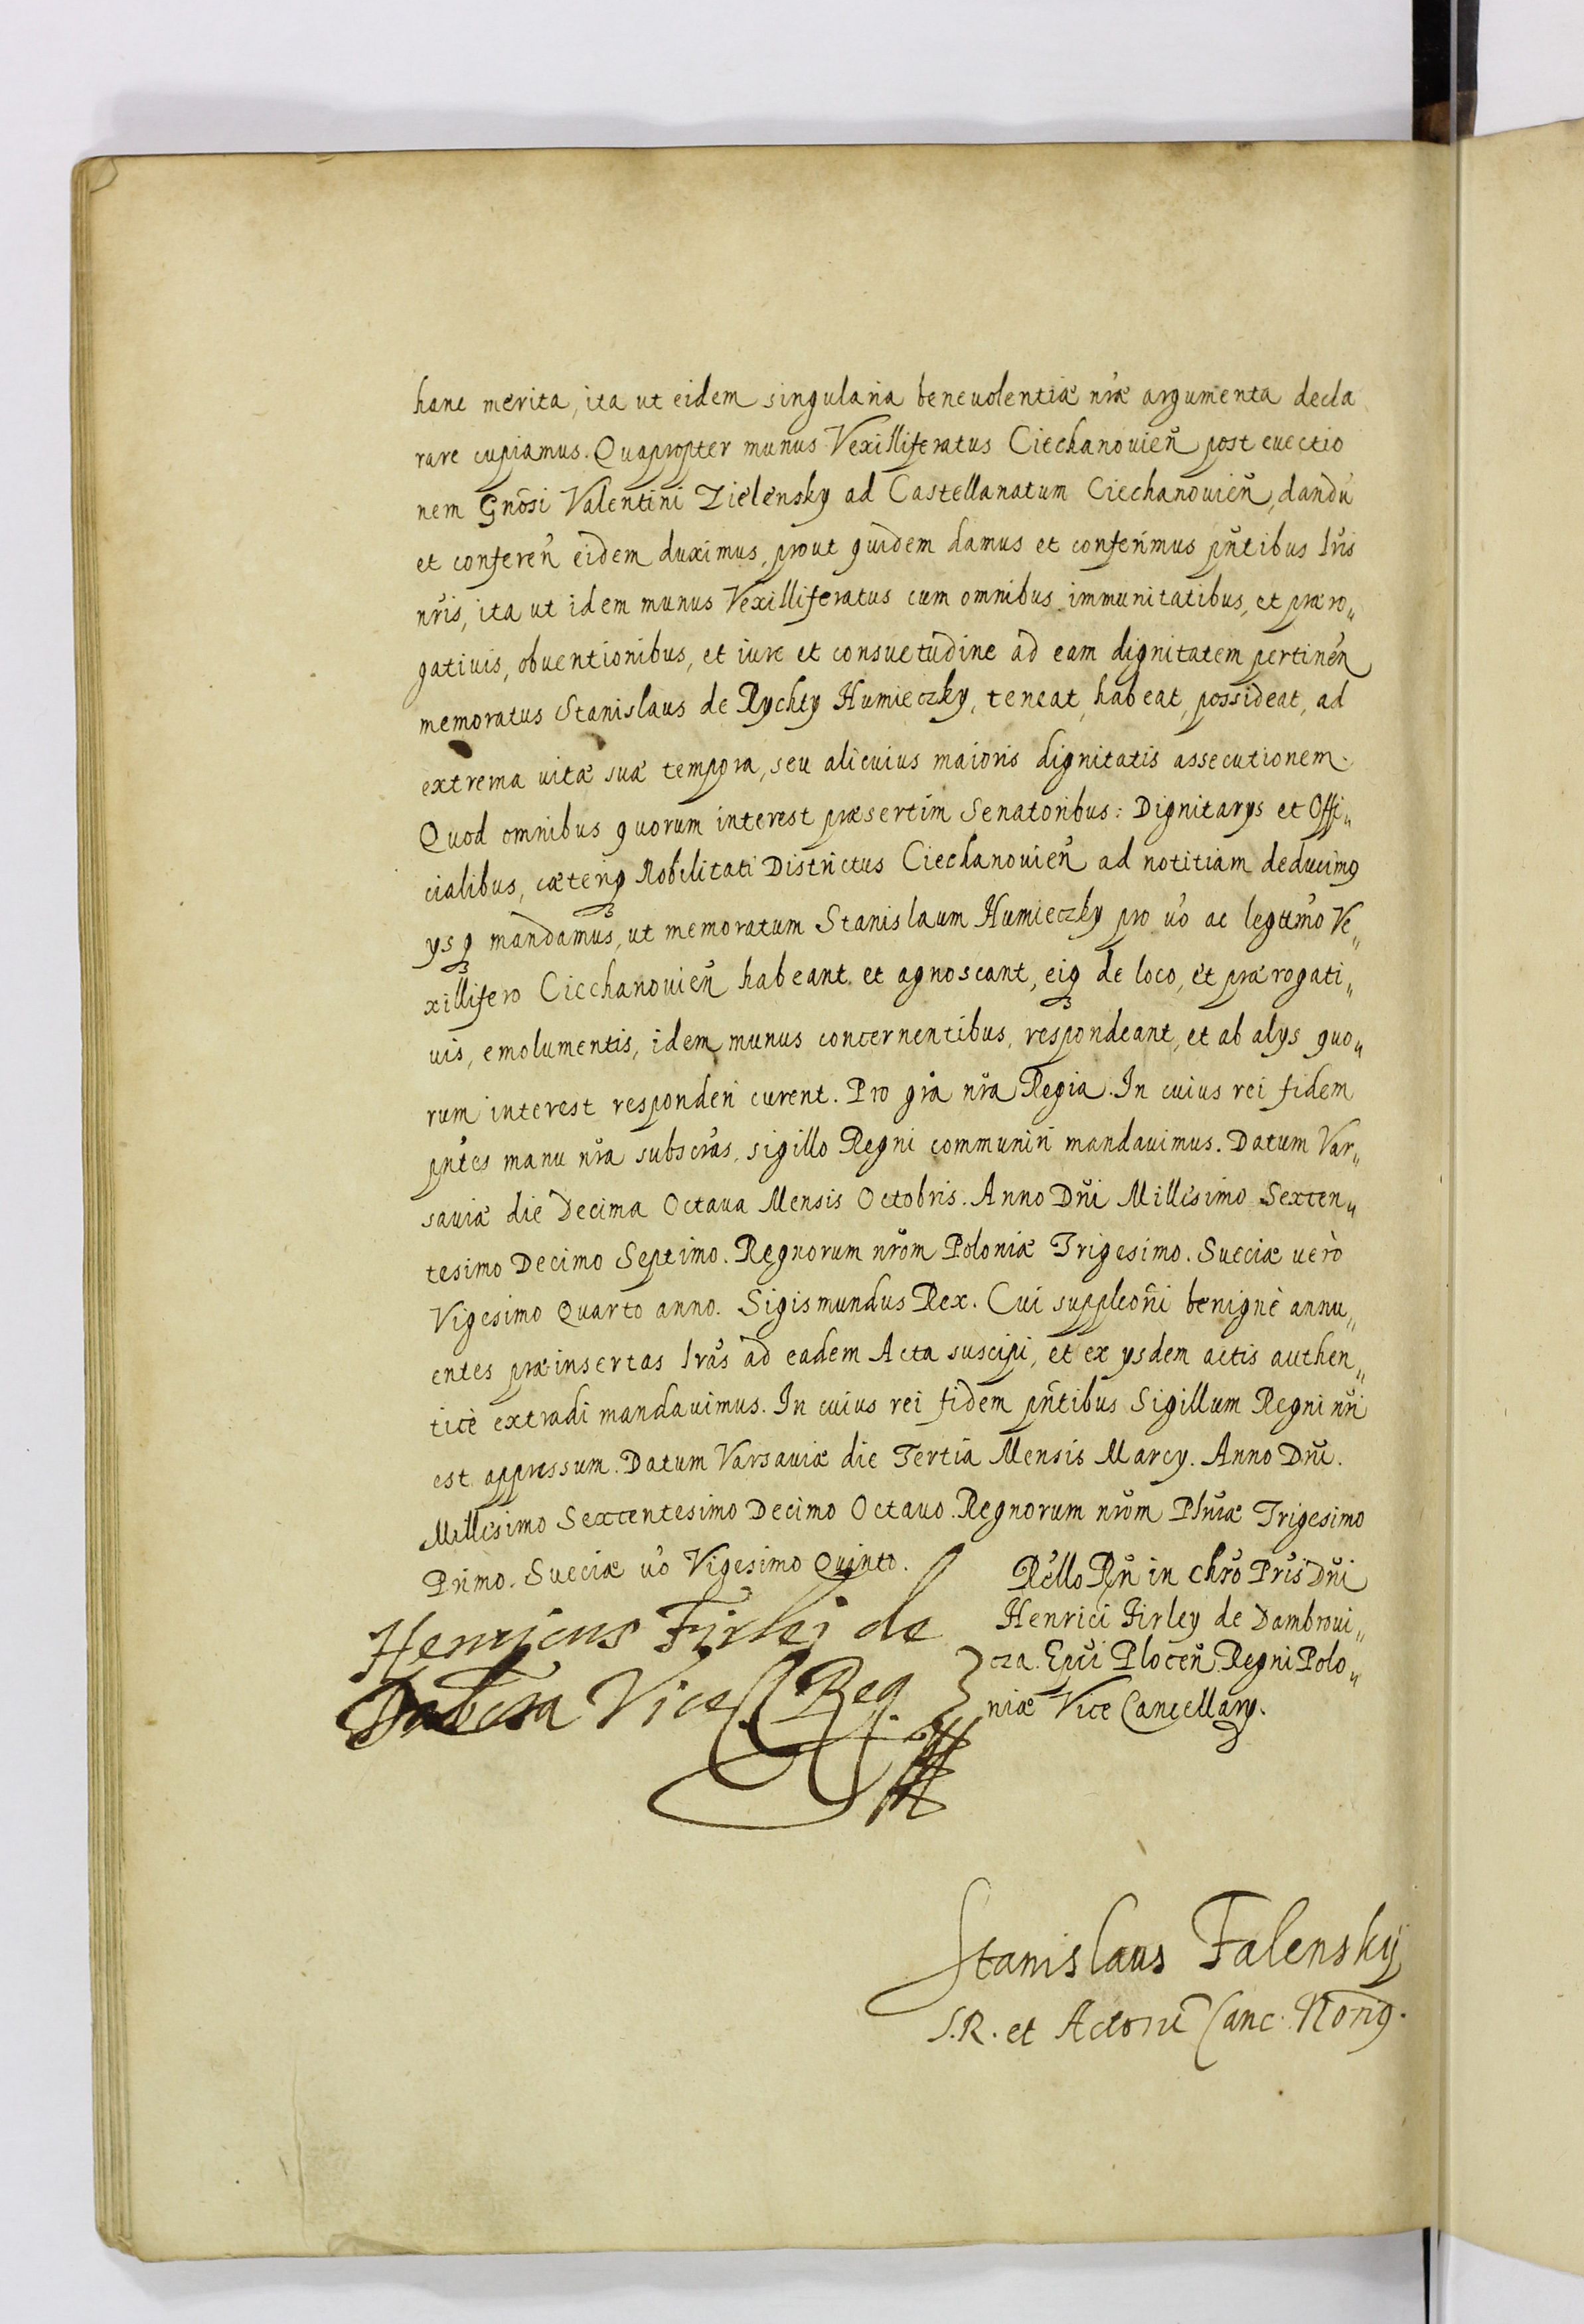 hanc merita, ita ut eidem singularia beneuolentiæ nr̃æ argumenta decla
rare cupiamus. Quapropter munus Vexilliferatus Ciechanouien̄ post euectio
nem Gnōsi Valentini Zielensky ad Castellanatum Ciechanouien̄, dandū
et conferen̄ eidem duximus, prout quidem damus et conferimus pn̄tibus lr̄is
nr̄is, ita ut idem munus Vexilliferatus cum omnibus immunitatibus, et præro„
gatiuis, obuentionibus, et iure et consuetudine ad eam dignitatem pertinen̄
memoratus Stanislaus de Rychty Humieczky, teneat, habeat, possideat, ad
extrema uitæ suæ tempora, seu alicuius maioris dignitatis assecutionem.
Quod omnibus quorum interest præsertim Senatoribus: Dignitarys et Offi„
cialibus, cæteriqȝ Nobilitati Districtus Ciechanouien̄ ad notitiam deducimꝯ
ysqȝ mandamus, ut memoratum Stanislaum Humieczky pro uō ac legtimō Ve„
xillifero Ciechanouien̄ habeant et agnoscant, eiqȝ de loco, et prærogati„
uis, emolumentis, idem munus concernentibus, respondeant, et ab alys quo„
rum interest responderi curent. Pro gr̄a nr̄a Regia. In cuius rei fidem
pn̄tes manu nr̄a subscr̄as, sigillo Regni communiri mandauimus. Datum Var„
sauiæ die Decima Octaua Mensis Octobris. Anno Dn̄i Millesimo Sexcen„
tesimo Decimo Septimo. Regnorum nr̄om Poloniæ Trigesimo. Sueciæ uerò
Vigesimo Quarto anno. Sigismundus Rex. Cui suppleōni benignè annu„
entes præinsertas lr̄as ad eadem Acta suscipi, et ex ysdem actis authen„
ticè extradi mandauimus. In cuius rei fidem pn̄tibus Sigillum Regni nr̄i
est appressum. Datum Varsauiæ die Tertia Mensis Marcy. Anno Dn̄i.
Millesimo Sexcentesimo Decimo Octauo. Regnorum nr̄om Plniæ Trigesimo
Primo. Sueciæ uō Vigesimo Quinto.
Henricus Firlej de
Dabrowica Vice C. Reg.
Rēllo Rn̄ in chrō Pr̄is Dn̄i
Henrici Firley de Dambroui„
cza. Epūi Plocen̄ Regni Polo„
niæ Vice Cancellary.
Stanislaus Falensky
S.R. et Actorū Canc. Noriꝯ.